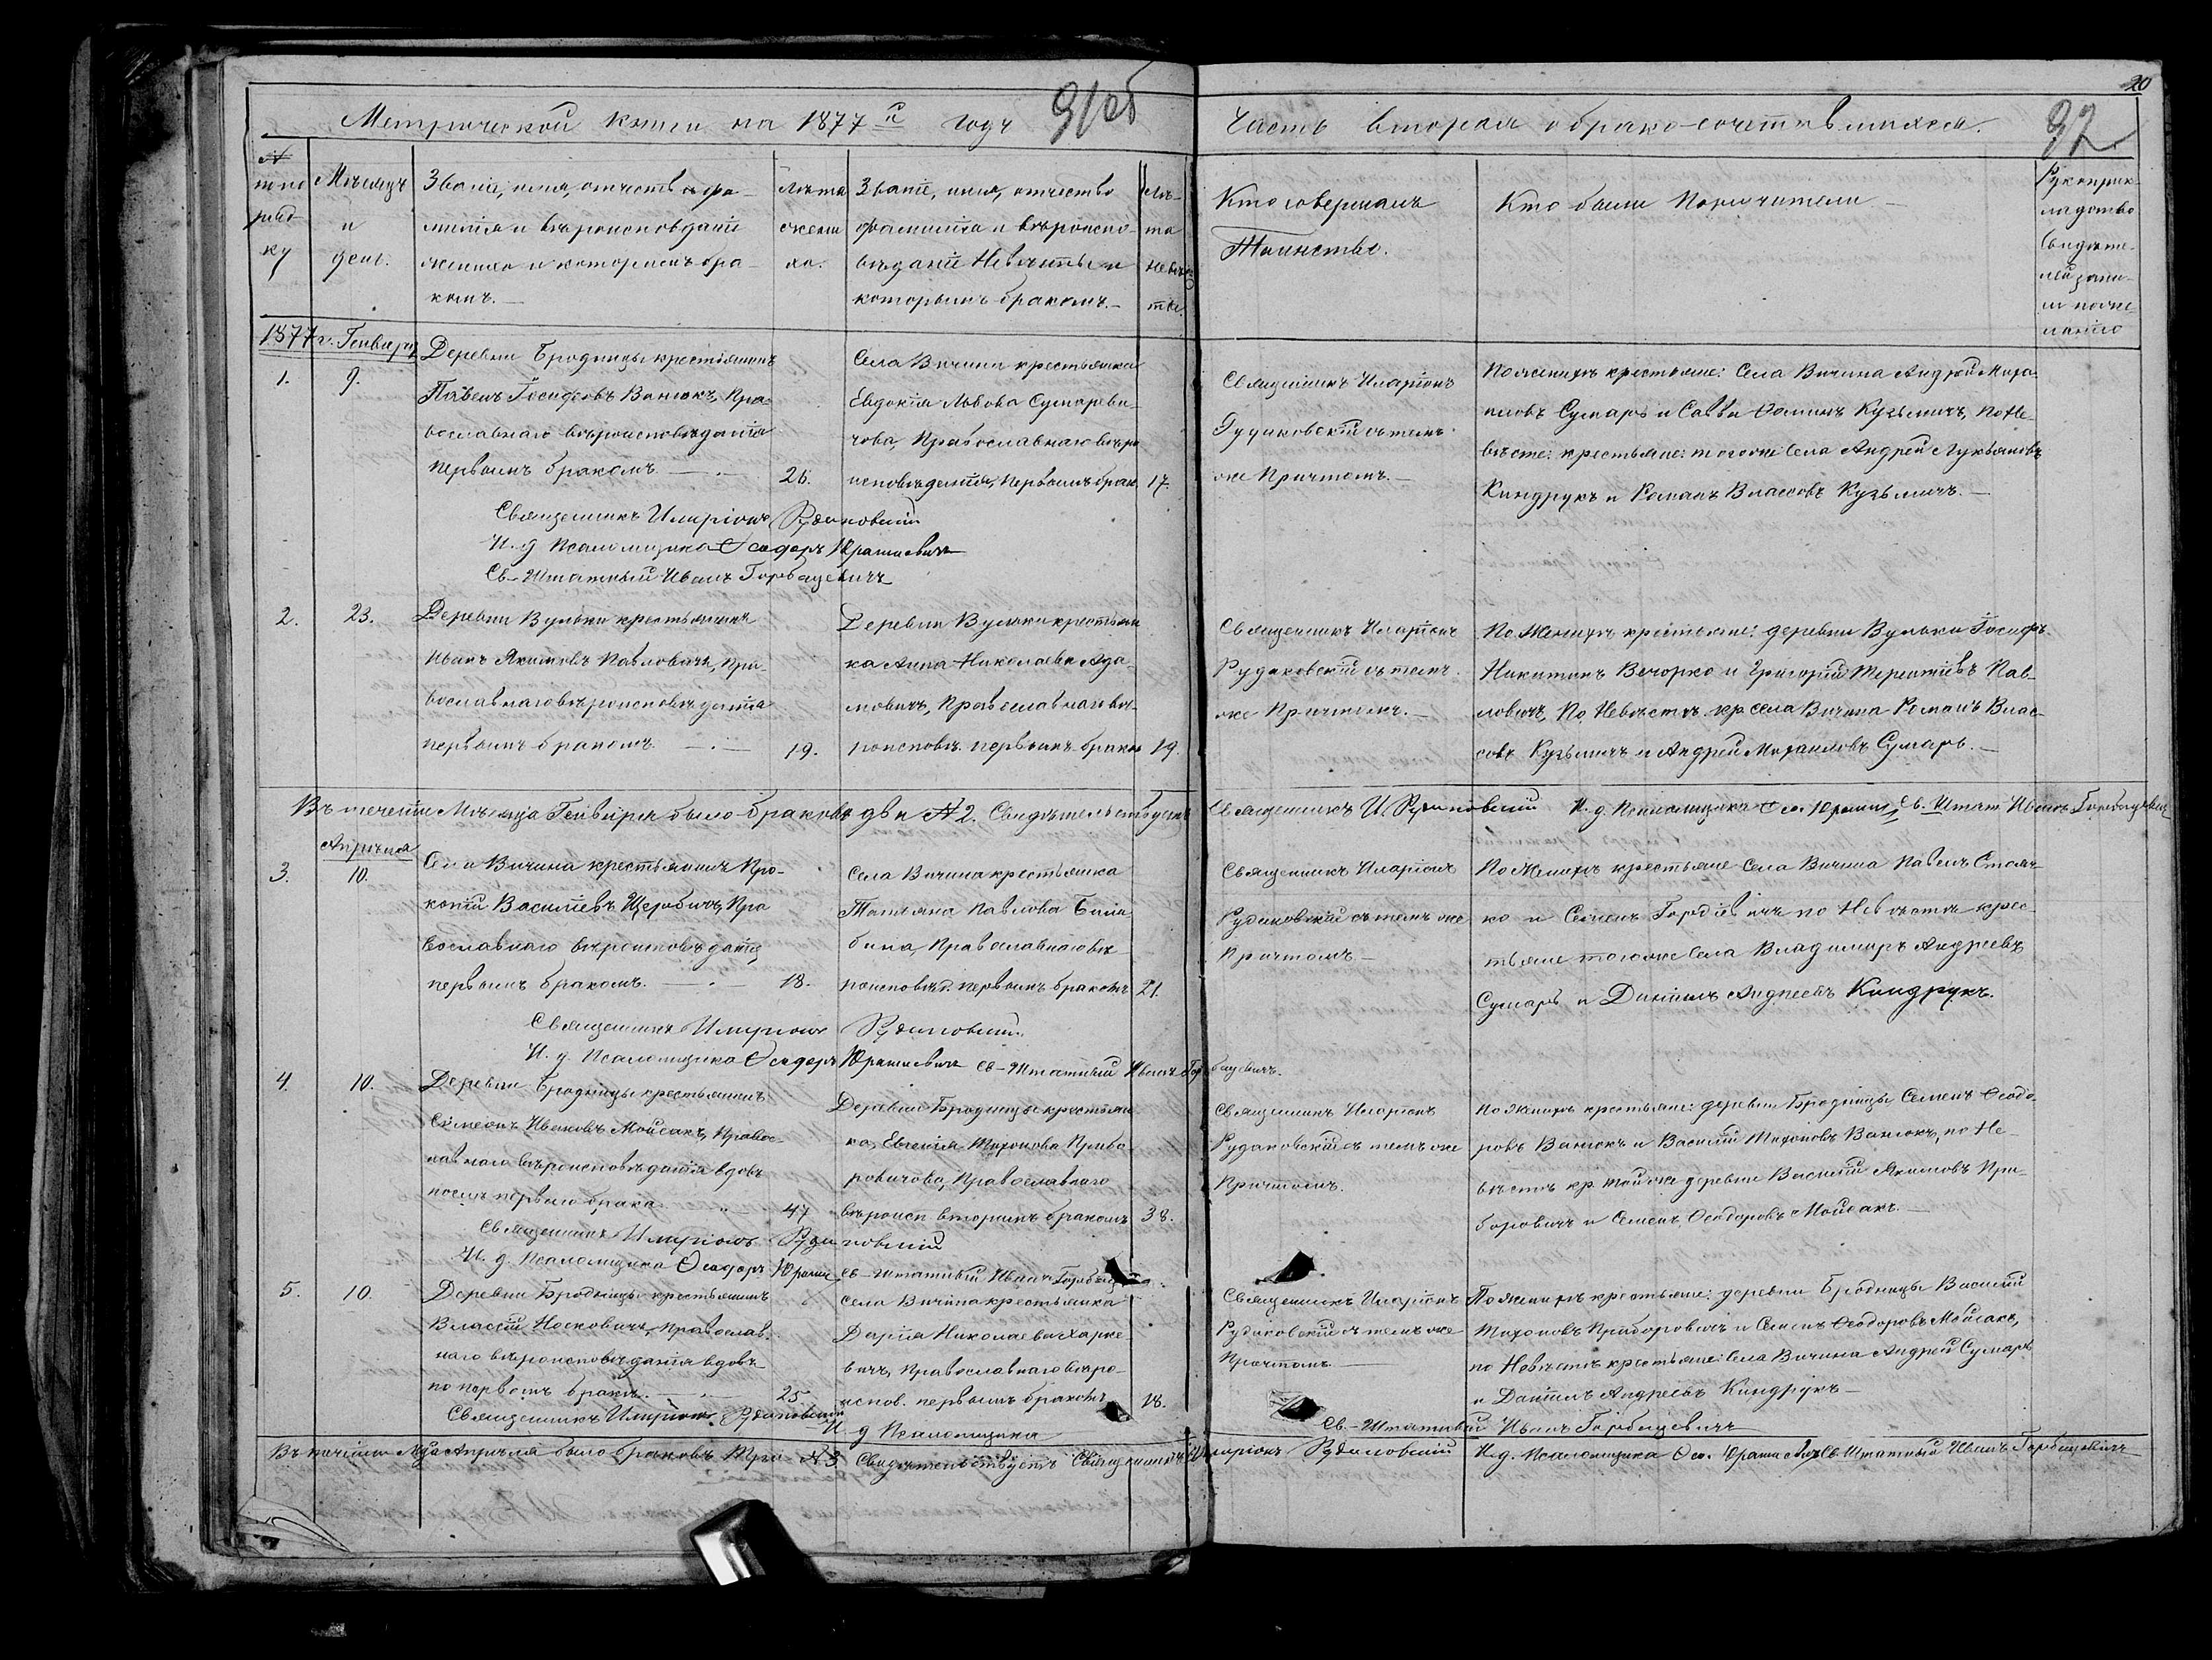 20
Метрической книги на 1877й годъ
91об
Часть вторая о брако-сочетавшихся.
92
№
по по
ряд
ку
Мѣсяцъ
и
день.
Званіе, имя, отчество и фа-
милія и вѣроисповѣданіе
жениха и которымъ бра-
комъ.
Лѣта
жени
ха.
Званіе, имя, отчество
фамилія и вѣроиспо-
вѣданіе Невѣсты и
которымъ бракомъ.
Лѣ-
та
невѣс-
ты.
Кто совершалъ
Таинство.
Кто были Поручители
Рукоприк-
ладство
свидѣте-
лей запи-
си по же-
ланію
1877 г. Генварь
1.
9.
Деревни Бродницы крестьянинъ
Павелъ Іосифовъ Ванюкъ, Пра-
вославнаго вѣроисповѣданія
первымъ бракомъ.
26.
Села Вичина крестьянка
Евдокія Львова Сумареви-
чова, Православнаго вѣро
исповѣданія, первымъ брак.
17.
Священникъ Иларіонъ
Рудаковскій съ тѣмъ
же Причтомъ.
По женихѣ крестьяне: Села Вичина Андрей Миха-
иловъ Сумаръ и Савва Ѳоминъ Кузьмичъ, По Не-
вѣстѣ: крестьяне: того же Села Андрей Лукьяновъ
Киндрукъ и Романъ Власовъ Кузьмичъ.
Священникъ Иларіонъ Рудаковскій
И. д. Псаломщика Ѳеодоръ Юрашевичъ
Св-Штатный Иванъ Горбацевичъ
2.
23.
Деревни Вульки крестьянинъ
Иванъ Якимовъ Павловичъ, Пра-
вославнаго вѣроисповѣданія
первымъ бракомъ
19.
Деревни Вульки крестьян
ка Анна Николаева Ада-
мовичъ, Православнаго вѣ-
роисповѣ. первымъ браком
19.
Священникъ Иларіонъ
Рудаковскій съ тѣмъ
же Причтомъ.
По Женихѣ крестьяне: деревни Вульки Іосифъ
Никитинъ Вечорко и Григорій Терентіевъ Пав-
ловичъ, По Невѣстѣ кр. села Вичина Романъ Влас-
совъ Кузьмичъ и Андрей Михаиловъ Сумаръ.
Въ теченіи Мѣсяца Генваря было браковъ два № 2. Свидѣтельствуемъ Священникъ И. Рудаковскій И. д. Псаломщика Ѳео. Юраш. Св. Штат. Иванъ Горбацевич
Апрѣля
3.
10.
Села Вичина крестьянинъ Про-
копій Василіевъ Щербичъ, Пра
вославнаго вѣроисповѣданія
первымъ бракомъ.
18.
Села Вичина крестьянка
Татьяна Павлова
Православнаго вѣ-
роисповѣд. первымъ бракомъ
21.
Священникъ Иларіонъ
Рудаковскій съ тѣмъ же
Причтомъ
По Женихѣ крестьяне Села Вичина Павелъ
и Семенъ Гордіевичъ по Невѣстѣ крес-
тьяне того же Села Владимиръ Андреевъ
Сумаръ и Даніилъ Андреевъ Киндрукъ.
Священникъ Иларіонъ Рудаковскій
И. д. Псаломщика Ѳеодоръ Юрашевичъ Св-Штатный Иванъ Горбацевичъ.
4.
10.
Деревни Бродницы крестьянинъ
Симеонъ Ивановъ Мойсакъ, Правос-
лавнаго вѣроисповѣданія вдовъ
послѣ перваго брака
47
Деревни Бродницы крестьян
ка, Евгенія Тихонова Прибо
ровичова, Православнаго
вѣроисп. вторымъ бракомъ
38.
Священникъ Иларіонъ
Рудаковскій съ тѣмъ же
Причтомъ.
По женихѣ крестьяне: деревни Бродницы Семенъ Ѳеодо-
ровъ Ванюкъ и Василій Тихоновъ Ванюкъ, по Не-
вѣстѣ кр. той же деревни Василій Якимовъ При-
боровичъ и Семенъ Ѳеодоровъ Мойсакъ.
Священникъ Иларіонъ Рудаковскій
И. д. Псаломщика Ѳеодоръ Юраш. Св-Штатный Иванъ
5.
10.
Деревни Бродницы крестьянинъ
Власій Носковичъ, Православ-
наго вѣроисповѣданія вдовъ
по первомъ бракѣ.
25
Села Вичина крестьянка
Дарія Николаева Харке
вичъ, Православнаго вѣро-
испов. первымъ бракомъ
18.
Священникъ Иларіонъ
Рудаковскій съ тѣмъ же
Причтомъ
По женихѣ крестьяне: деревни Бродницы Василій
Тихоновъ Приборовичъ и Семенъ Ѳеодоровъ Мойсакъ,
по Невѣстѣ крестьяне: Села Вичина Андрей Сумаръ
и Даніилъ Андреевъ Киндрукъ
Священникъ Иларіонъ Рудаковскій И. д. Псаломщика Св-Штатный Иванъ Горбацевичъ
Въ теченіи Мѣсяца Апрѣля было браковъ Три № 3. Свидѣтельствуетъ Священникъ Иларіонъ Рудаковскій И. д. Псаломщика Ѳео. Юрашевичъ Св. Штатный Иванъ Горбацевичъ